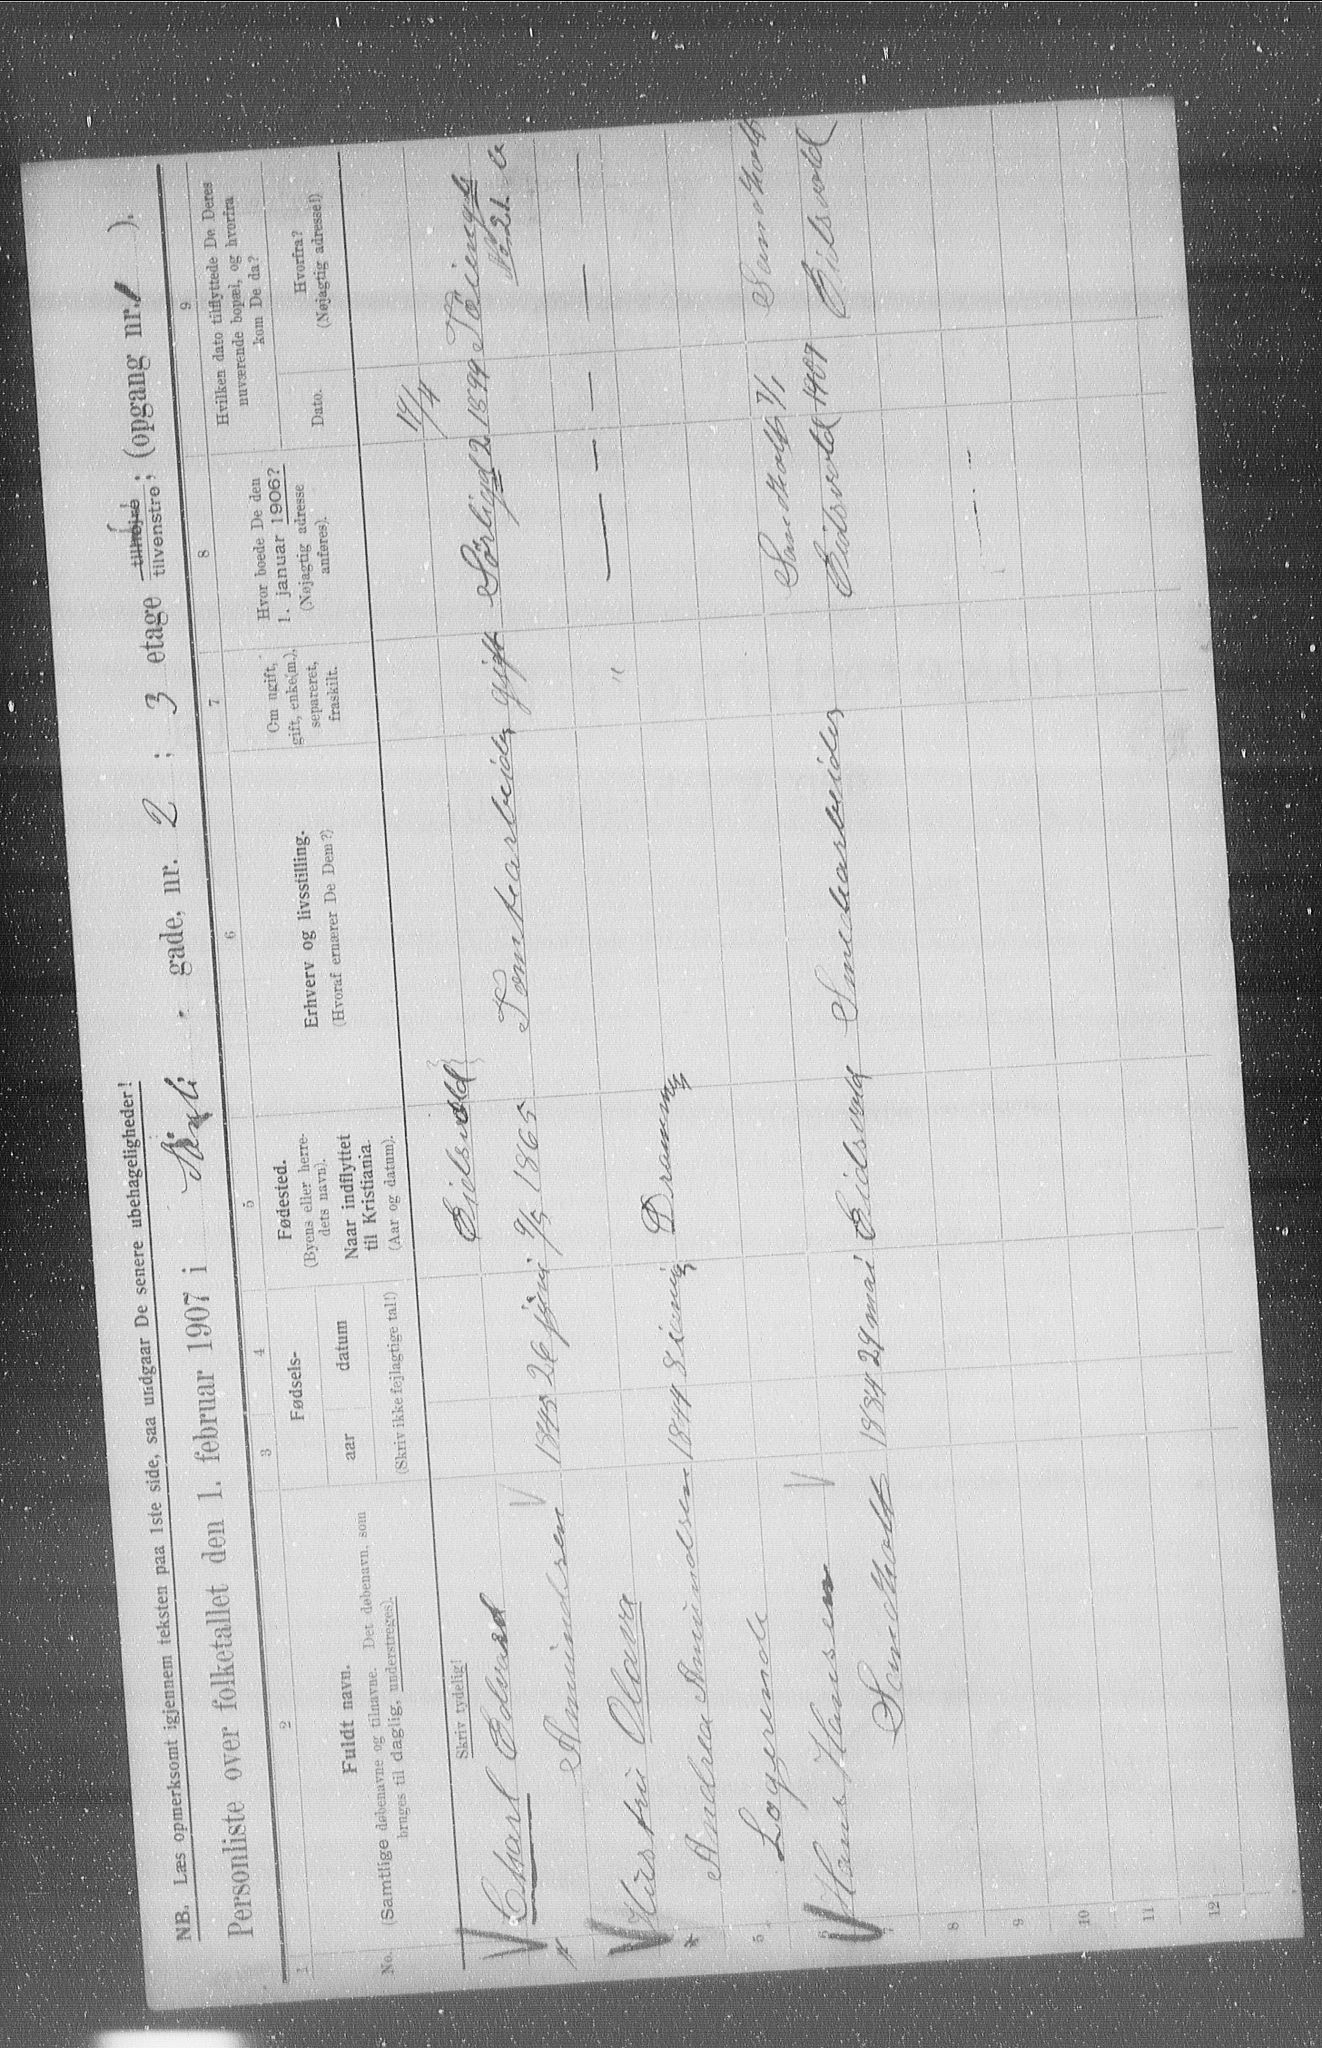 NB. Læs opmerksomt igjennem teksten paa 1ste side, saa undgaar De senere ubehageligheder!
Personliste over folketallet den 1. februar 1907 i Sørli gade, nr. 2 ; 3 etage tilhøjre tilvenstre ; (opgang nr. 1 ).
1 2 3 4 5 6 7 8 9
No.
Fuldt navn.
(Samtlige døbenavne og tilnavne. Det døbenavn, som
bruges til daglig, understreges).
Fødsels-
aar datum
(Skriv ikke fejlagtige tal!)
Fødested.
(Byens eller herre-
dets navn).
Naar indflyttet
til Kristiania.
(Aar og datum).
Erhverv og livsstilling.
(Hvoraf ernærer De Dem?)
Om ugift,
gift, enke(m.),
separeret,
fraskilt.
Hvor boede De den
1. januar 1906?
(Nøjagtig adresse
anføres).
Hvilken dato tilflyttede De Deres
nuværende bopæl, og hvorfra
kom De da?
Dato.
Hvorfra?
(Nøjagtig adresse!)
Skriv tydelig!
Eidsvold 14/4
Charl Edvard Tomtearbeider gift Sörligd 2 1899 Töiengd
Amundsen 1845 26 juni 9/5 1865 Nr 21
Hustru Olava " — — — — —
Andrea Amundsen 1844 Drammen
5 Logerende Sandholt 7/1 Sandholt
6 Hans Hansen Smedarbeider Eidsvold 1907 Eidsvold
7 Sandholt 1884 29 mai Eidsvold
8
9
10
11
12